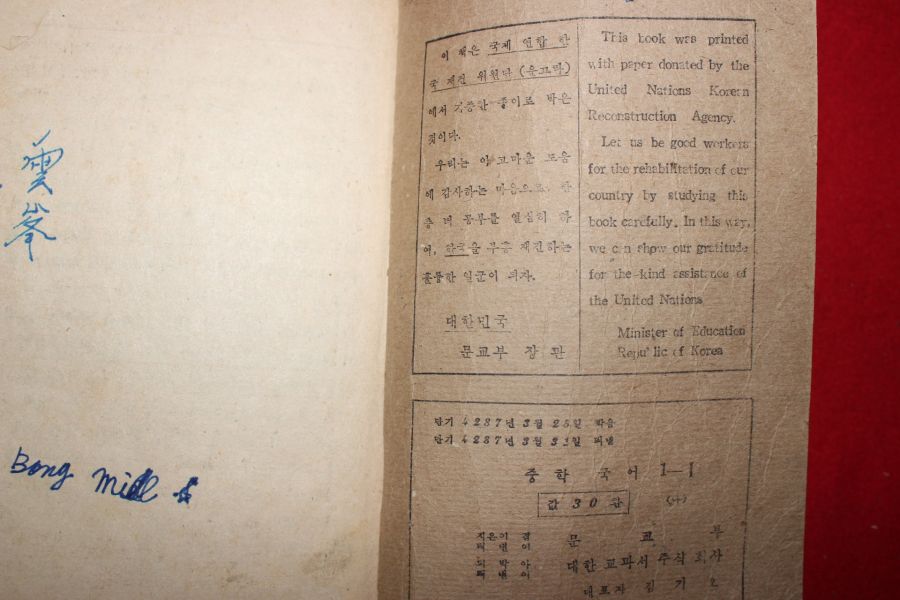 雲
峯
Bong
이 책은 국제 연합 한
국 재건 위원단 (운끄라)
에서 기증한 종이로 박은
것이다.
우리는 이 고마운 도움
에 감사하는 마음으로, 한
층 더 공부를 열심히 하
여, 한국을 부흥 재건하는
훌륭한 일군이 되자.
대한민국
문교부 장관
This book was printed
with paper donated by the
United Nations Korean
Reconstruction Agency.
Let us be good workers
for the rehabilitation of our
country by studying this
book carefully. In this way,
we can show our gratitude
for the kind assistance of
the United Nations
Minister of Education
Republic of Korea
단기 4287년 3월 28일 박음
단기 4287년 3월 31일 펴냄
중학 국어 1—1
값 30환
지은이 겸
펴낸이
문교부
대한 교과서 주식 회사
대표자 김기